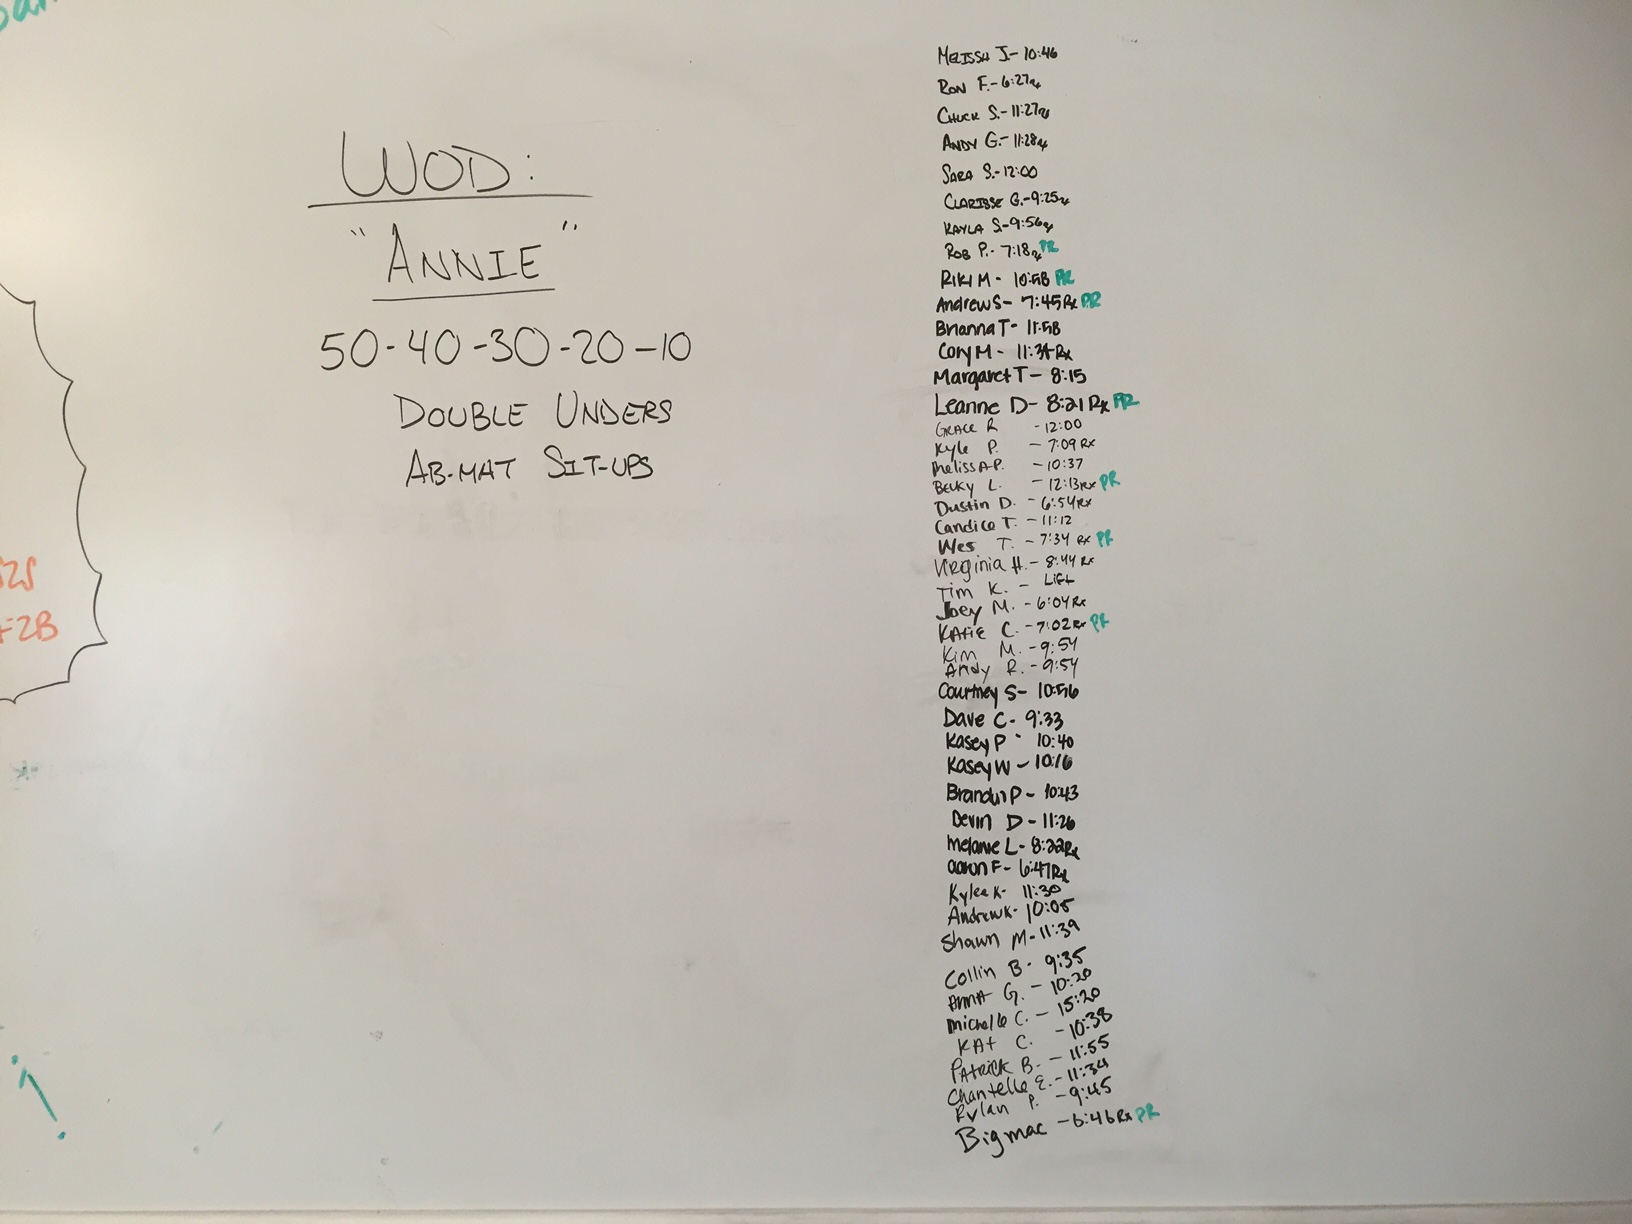 WOD:
"ANNIE"
50-40-30-20-10
DOUBLE UNDERS
AB-MAT SIT-UPS
MELISSA J.- 10:46
RON F.- 6:27Rx
CHUCK S.- 11:27Rx
ANDY G.- 11:28Rx
SARA S.- 12:00
CLARISSE G.-9:25Rx
KAYLA S.-9:56Rx
ROB P.- 7:18Rx PR
RIKI M - 10:58 PR
Andrew S- 7:45Rx PR
Brianna T- 11:58
Cory M - 11:34Rx
Margaret T - 8:15
Leanne D- 8:21 Rx PR
GRACE R - 12:00
Kyle P. - 7:09 Rx
Meliss A.P. - 10:37
BECKY L. - 12:13Rx PR
Dustin D. - 6:54Rx
Candice T. - 11:12
Wes T. - 7:34 Rx PR
VIRginia H. - 8:44 Rx
Tim K. - Lift
Joey M. - 6:04 Rx
KATIE C. - 7:02Rx PR
Kim M. - 9:54
Andy R. - 9:54
Courtney S- 10:56
Dave C- 9:33
Kasey P - 10:40
Kasey W - 10:16
Brandon P - 10:43
Devin D - 11:26
Melanie L- 8:22Rx
aaron F- 6:47Rx
Kylee K- 11:30
Andrew K- 10:05
Shawn M-11:39
Collin B - 9:35
ANNA G. - 10:20
Michelle C. - 15:20
KAt C. - 10:38
PATRICK B. - 11:55
Chantelle E. - 11:34
Rylan P. - 9:45
Big mac - 6:46 Rx PR
S2S
F2B